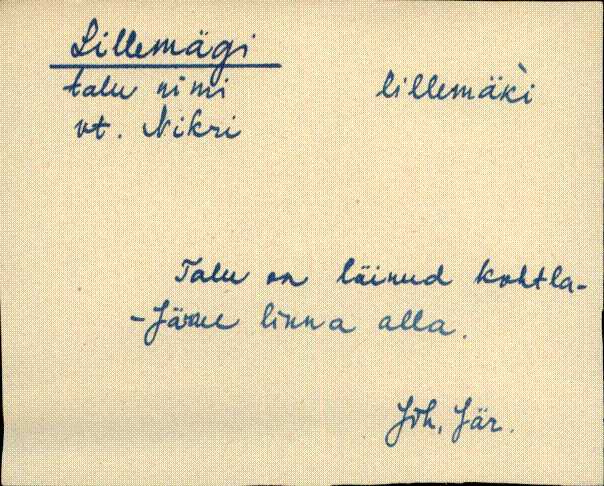 Lillemägi
talu nimi lillemäk̀i
vt. Nikri
Talu on läinud kohtla-
-Järve linna alla.
Jõh, Jär.